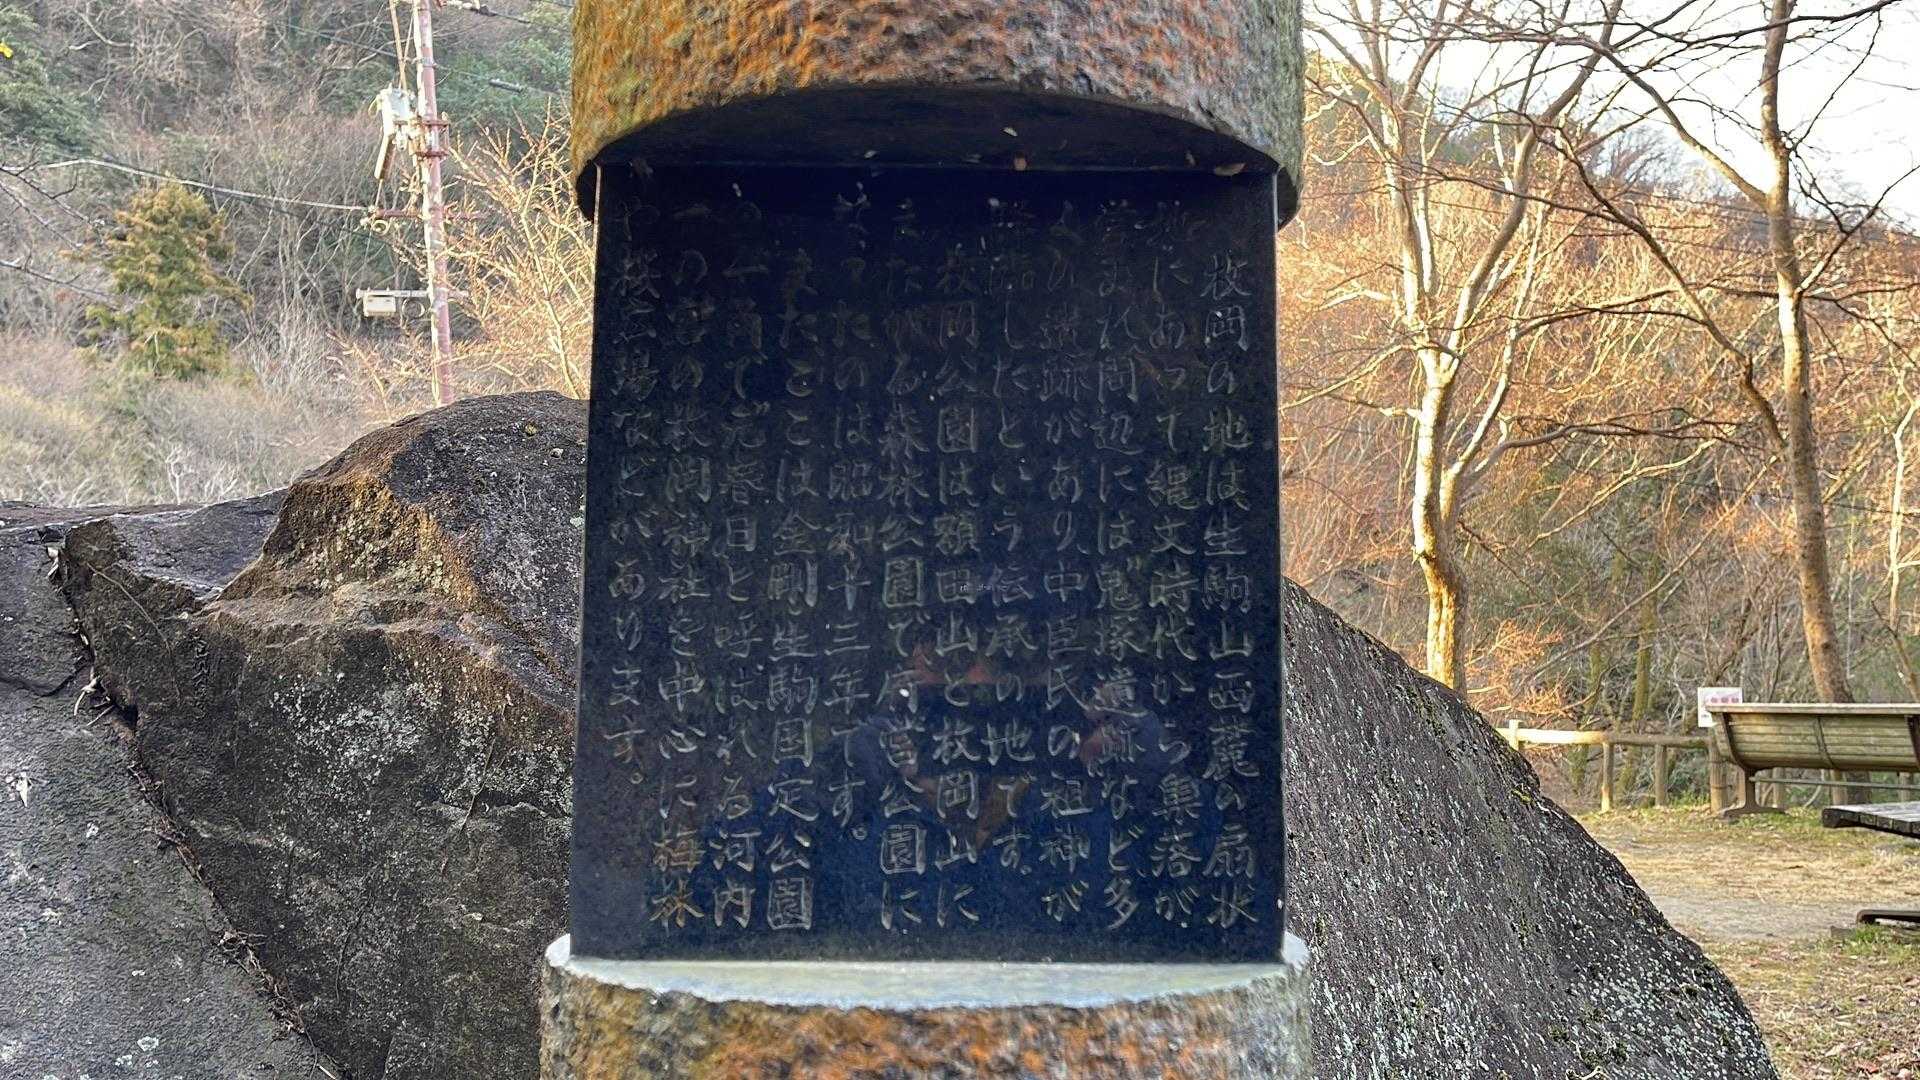 枚岡の地は生駒山西麓の扇状
地にあって縄文時代から集落が
営まれ周辺には鬼塚遺跡など多
くの遺跡があり、中臣氏の祖神が
降臨したという伝承の地です。
枚岡公園は額田山と枚岡山に
またがる森林公園で、府営公園に
なったのは昭和十三年です。
またここは金剛生駒国定公園
の一角で元春日と呼ばれる河内
一の宮の枚岡神社を中心に梅林
や桜広場などがあります。